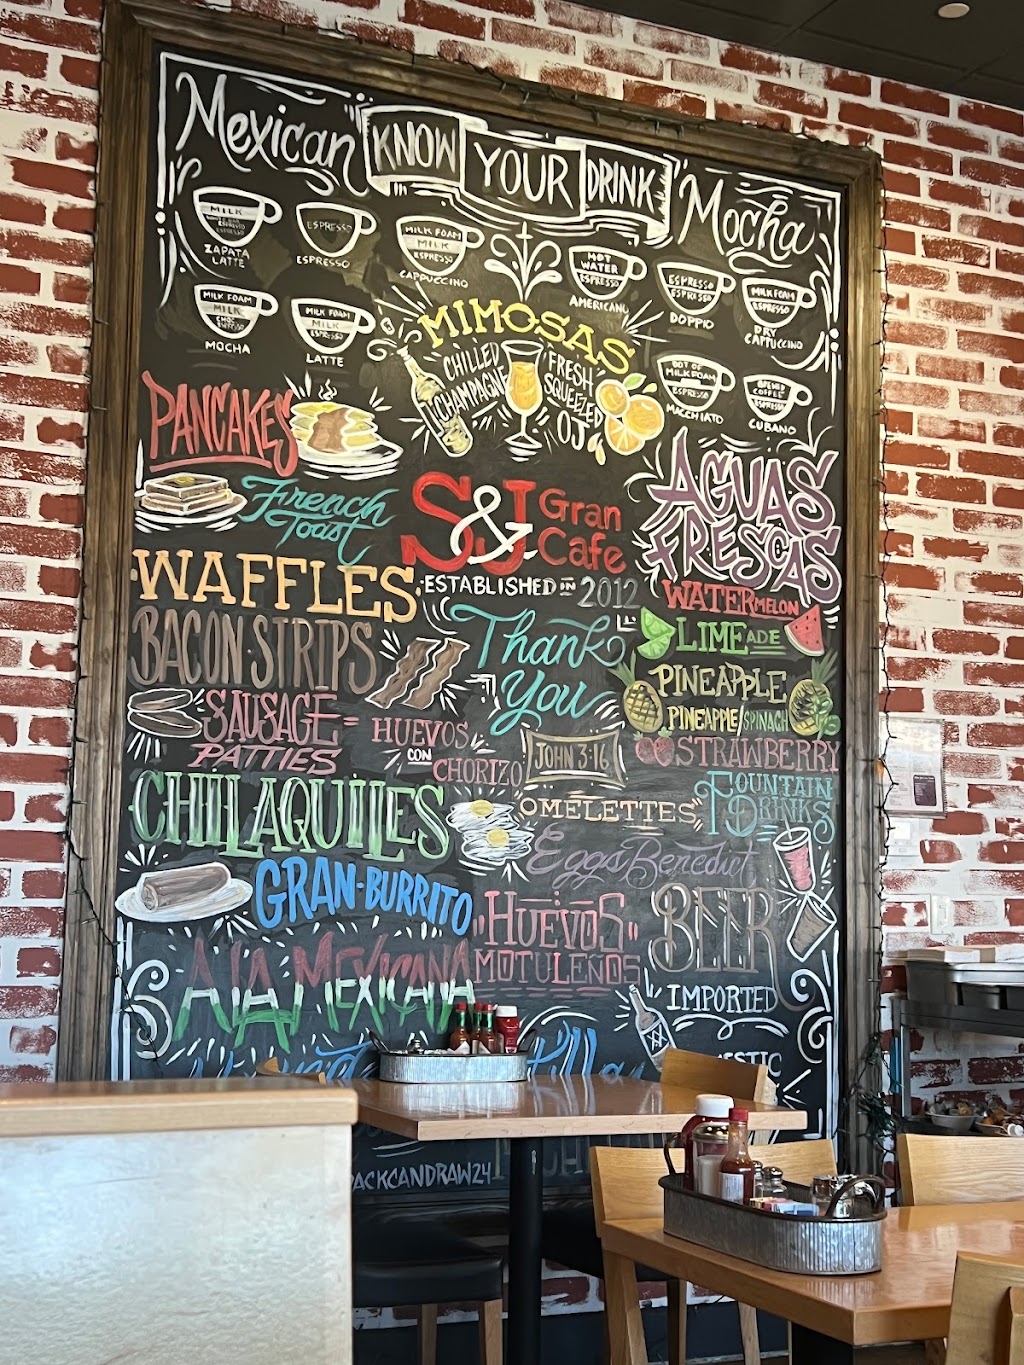 Mexican KNOW YOUR DRINK Mocha
MILK
ESPRESSO
ZAPATA
LATTE
ESPRESSO
ESPRESSO
MILK FOAM
MILK
ESPRESSO
CAPPUCCINO
HOT
WATER
ESPRESSO
AMERICANO
ESPRESSO
ESPRESSO
DOPPIO
MILK FOAM
ESPRESSO
DRY
CAPPUCCINO
MILK FOAM
MILK
CHOC
ESPRESSO
MOCHA
MILK FOAM
MILK
ESPRESSO
LATTE
DOT OF
MILK FOAM
ESPRESSO
MACCHIATO
BREWED
COFFEE
ESPRESSO
CUBANO
MIMOSAS
CHILLED
CHAMPAGNE
FRESH
SQUEEZED
OJ
PANCAKES
French
Toast
S&J Gran
Cafe
ESTABLISHED IN 2012
AGUAS
FRESCAS
WAFFLES
BACON STRIPS
Thank
You
WATERMELON
LIMEADE
PINEAPPLE
PINEAPPLE/SPINACH
STRAWBERRY
SAUSAGE
PATTIES
HUEVOS
CON
CHORIZO
JOHN 3:16
CHILAQUILES
"OMELETTES"
FOUNTAIN
DRINKS
Eggs Benedict
GRAN-BURRITO
"HUEVOS"
MOTULEÑOS
BEER
IMPORTED
A LA MEXICANA
ACKCANDRAW24